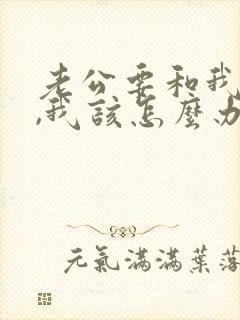 老公要和我
,我该怎麽办
元氣滿滿葉落